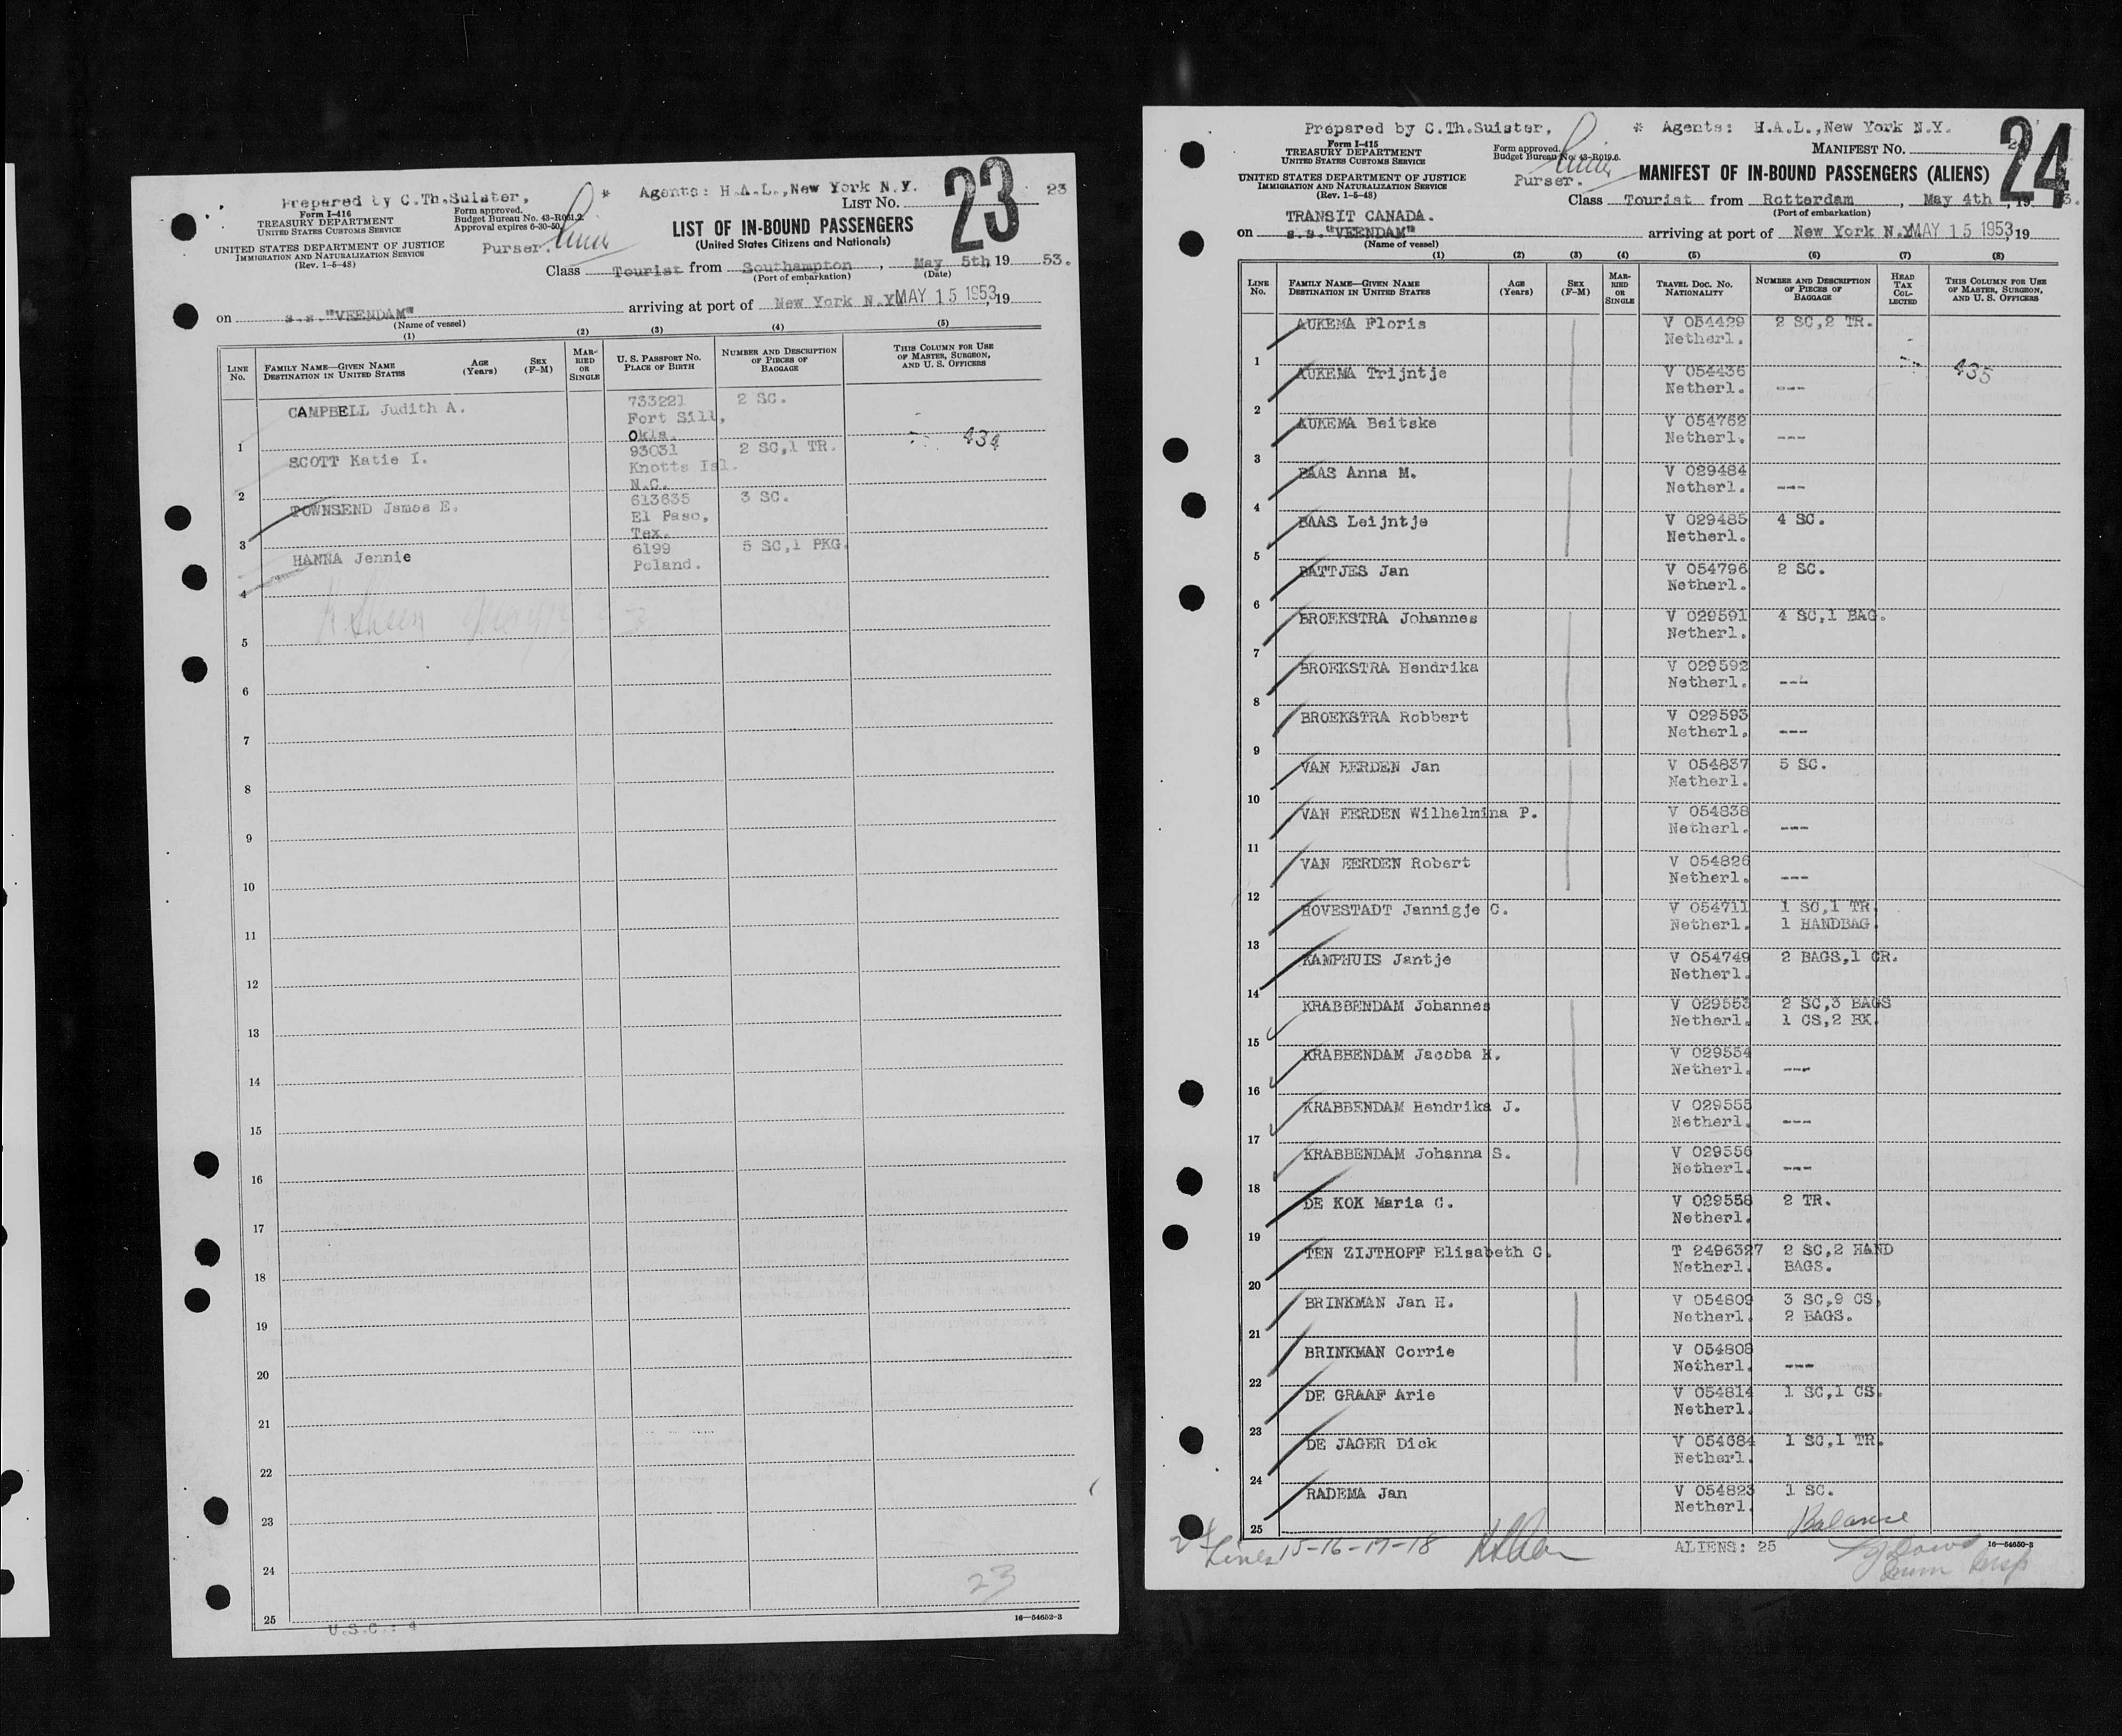 Prepared by C.Th.Suister,
* Agents: H.A.L.,New York N.Y.
23
23
Form I-416
TREASURY DEPARTMENT
UNITED STATES CUSTOMS SERVICE
Form approved.
Budget Bureau No. 43-R061.2.
Approval expires 6-30-50.
LIST No.
UNITED STATES DEPARTMENT OF JUSTICE
IMMIGRATION AND NATURALIZATION SERVICE
(Rev. 1-5-48)
Purser.
LIST OF IN-BOUND PASSENGERS
(United States Citizens and Nationals)
Class Tourist from Southampton, May 5th, 19 53.
(Port of embarkation) (Date)
on s.s."VEENDAM" arriving at port of New York N.Y. MAY 15 1953, 19
(Name of vessel)
(1) (2) (3) (4) (5)
LINE No. FAMILY NAME—GIVEN NAME DESTINATION IN UNITED STATES AGE (Years) SEX (F-M) MARRIED OR SINGLE U. S. PASSPORT No. PLACE OF BIRTH NUMBER AND DESCRIPTION OF PIECES OF BAGGAGE THIS COLUMN FOR USE OF MASTER, SURGEON, AND U. S. OFFICERS
CAMPBELL Judith A. 733221 2 SC.
Fort Sill,
1 Okla. 434
SCOTT Katie I. 93031 2 SC,1 TR.
Knotts Isl.
2 N.C.
TOWNSEND James E. 613635 3 SC.
El Paso,
3 Tex.
HANNA Jennie 6199 5 SC,1 PKG.
Poland.
4
5
6
7
8
9
10
11
12
13
14
15
16
17
18
19
20
21
22
23
24
23
25
U.S.C.: 4
16—54652-3
Prepared by C.Th.Suister,
* Agents: H.A.L.,New York N.Y.
24
Form I-415
TREASURY DEPARTMENT
UNITED STATES CUSTOMS SERVICE
Form approved.
Budget Bureau No. 43-R019.6.
MANIFEST No.
UNITED STATES DEPARTMENT OF JUSTICE
IMMIGRATION AND NATURALIZATION SERVICE
(Rev. 1-5-48)
Purser.
MANIFEST OF IN-BOUND PASSENGERS (ALIENS)
Class Tourist from Rotterdam, May 4th, 19 53.
(Port of embarkation)
TRANSIT CANADA.
on s.s."VEENDAM" arriving at port of New York N.Y. MAY 15 1953, 19
(Name of vessel)
(1) (2) (3) (4) (5) (6) (7) (8)
LINE No. FAMILY NAME—GIVEN NAME DESTINATION IN UNITED STATES AGE (Years) SEX (F-M) MARRIED OR SINGLE TRAVEL DOC. No. NATIONALITY NUMBER AND DESCRIPTION OF PIECES OF BAGGAGE HEAD TAX COLLECTED THIS COLUMN FOR USE OF MASTER, SURGEON, AND U. S. OFFICERS
AUKEMA Floris V 054429 2 SC,2 TR.
Netherl.
1
AUKEMA Trijntje V 054436 435
Netherl. ---
2
AUKEMA Beitske V 054762
Netherl. ---
3
BAAS Anna M. V 029484
Netherl. ---
4
BAAS Leijntje V 029485 4 SC.
Netherl.
5
BATTJES Jan V 054796 2 SC.
Netherl.
6
BROEKSTRA Johannes V 029591 4 SC,1 BAG.
Netherl.
7
BROEKSTRA Hendrika V 029592
Netherl. ---
8
BROEKSTRA Robbert V 029593
Netherl. ---
9
VAN EERDEN Jan V 054837 5 SC.
Netherl.
10
VAN EERDEN Wilhelmina P. V 054838
Netherl. ---
11
VAN EERDEN Robert V 054826
Netherl. ---
12
HOVESTADT Jannigje C. V 054711 1 SC,1 TR.
Netherl. 1 HANDBAG.
13
KAMPHUIS Jantje V 054749 2 BAGS,1 CR.
Netherl.
14
KRABBENDAM Johannes V 029553 2 SC,3 BAGS
Netherl. 1 CS,2 BX.
15
KRABBENDAM Jacoba H. V 029554
Netherl. ---
16
KRABBENDAM Hendrika J. V 029555
Netherl. ---
17
KRABBENDAM Johanna S. V 029556
Netherl. ---
18
DE KOK Maria C. V 029558 2 TR.
Netherl.
19
TEN ZIJTHOFF Elisabeth C. T 2496327 2 SC,2 HAND
Netherl. BAGS.
20
BRINKMAN Jan H. V 054809 3 SC,9 CS,
Netherl. 2 BAGS.
21
BRINKMAN Corrie V 054808
Netherl. ---
22
DE GRAAF Arie V 054814 1 SC,1 CS.
Netherl.
23
DE JAGER Dick V 054684 1 SC,1 TR.
Netherl.
24
RADEMA Jan V 054823 1 SC.
Netherl.
25 Balance
Lines 15-16-17-18
ALIENS: 25
16—54650-3